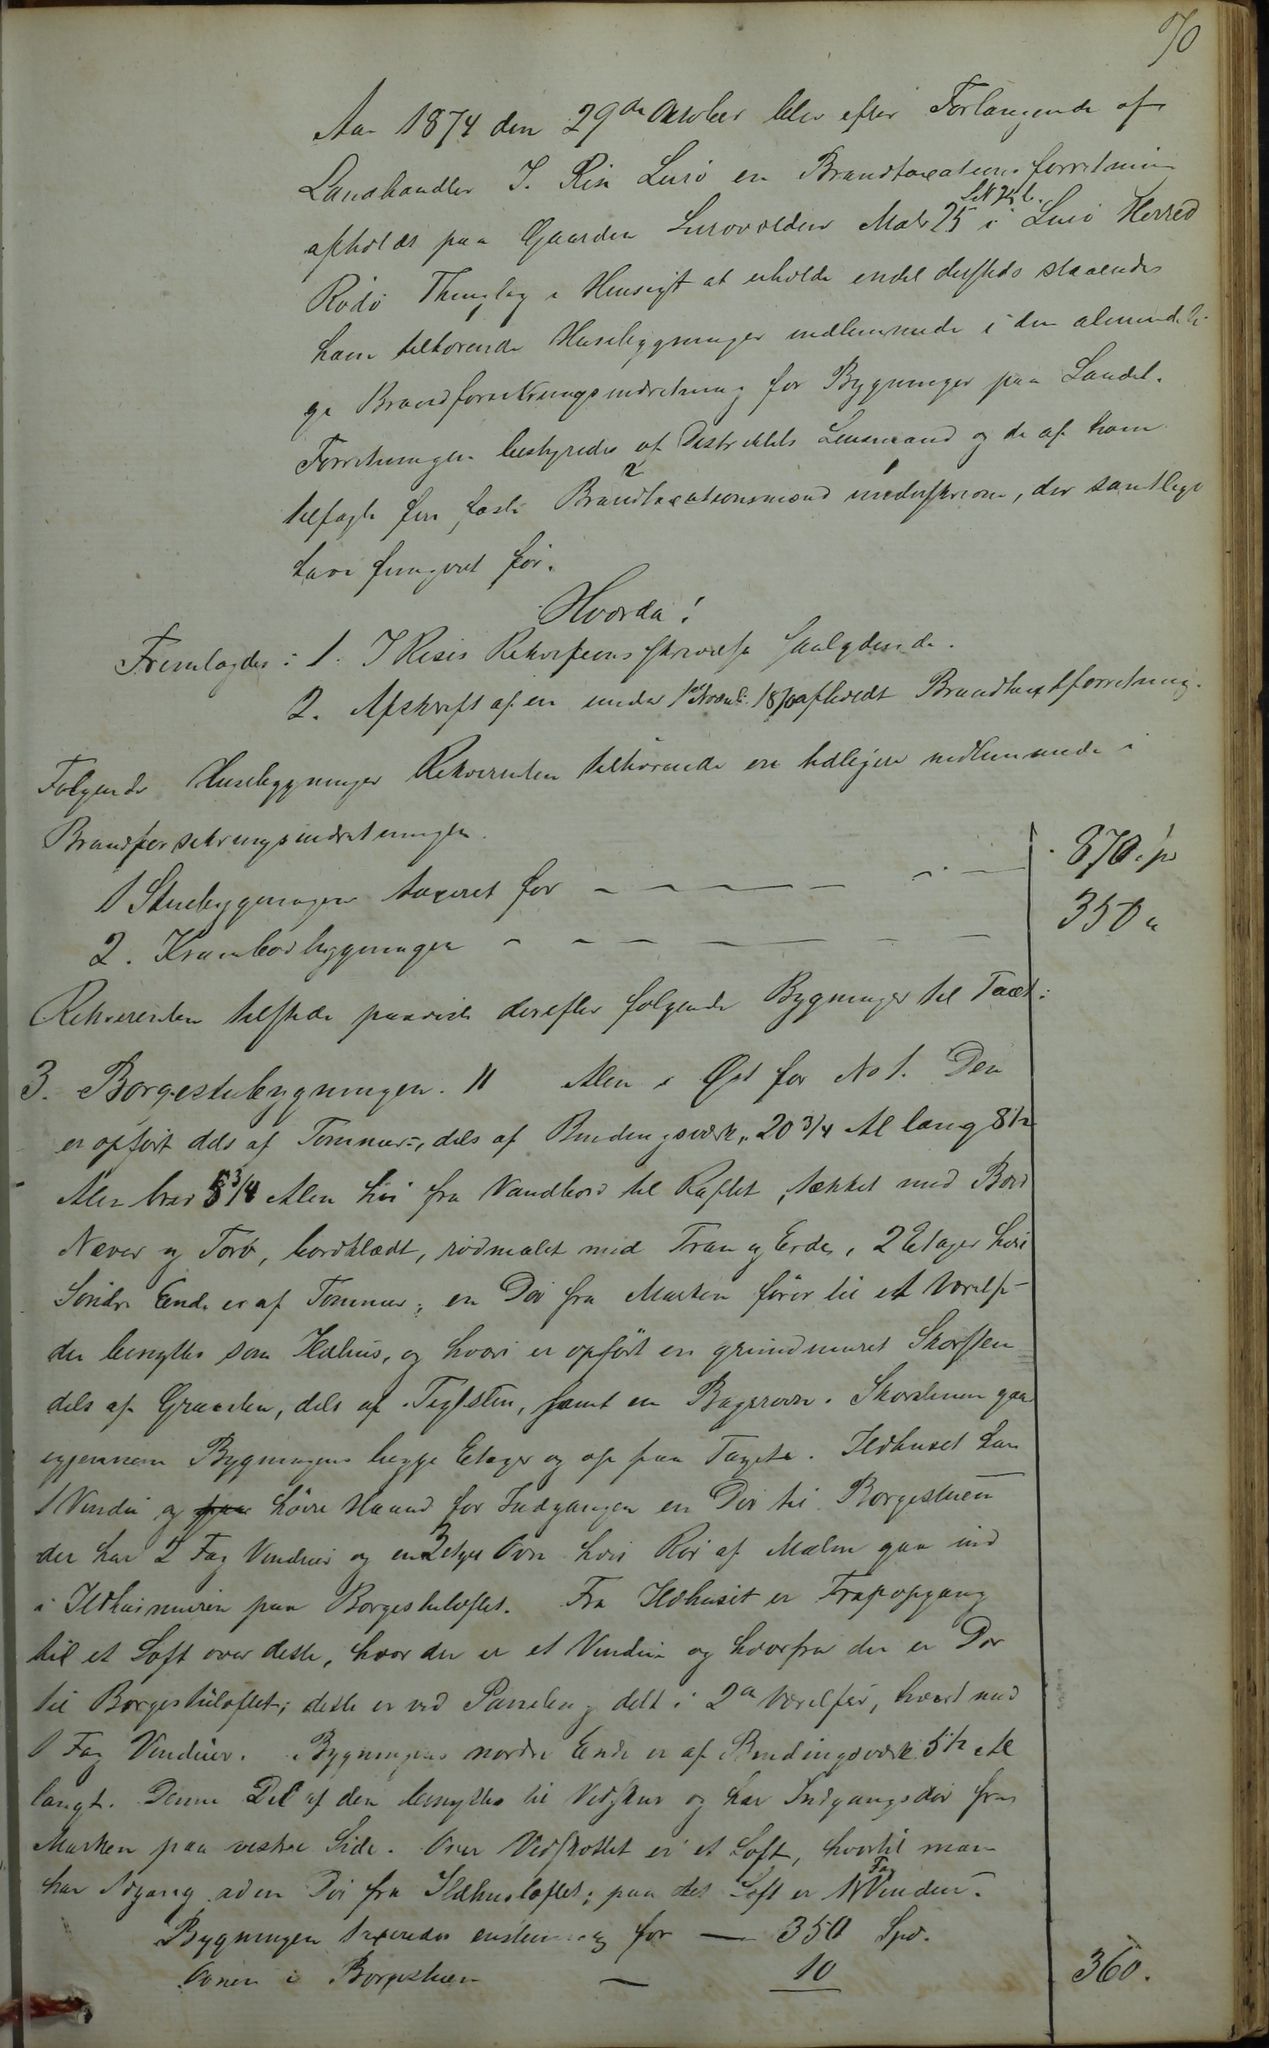 70
Aar 1874 den 29de Oktober blev efter Forlangende af
Landhandler J. Riis Lurö en Brandtaxationsforretning
afholdt paa Gaarden Lurovolden Matr 25 i Lurö Herred
Rödö Thinglag i Hensigt at erholde endel dersteds staaende
ham tilhörende Husebygninger indlemmede i den almindeli-
ge Brandforsikringsindretning for Bygninger paa Landet.
Forretningen bestyredes af Distriktets Lensmand og de af ham
tilsagte fire faste Brandtaxationsmænd underskrevne, der samtlige
have fungeret för.
Hvorda!
Fremlagdes: 1. J Riis's Rekvisitionsskrivelse saalydende.
2. Afskrift af en under 1ste Novemb. 1870 afholdt Brandtaxtforretning.
Følgende Husebygninger Rekvirenten tilhörende ere tidligere indlemmede i
Brandforsikringsindretningen.
1 Stuebygningen taxeret for — — — — — 870 sp
2. Krambodbygningen — — — — — 350 "
Rekvirenten tilstede paaviste derefter følgende Bygninger til Taxt:
3. Borgestubygningen. 11 Alen i Øst for No 1. Den
er opfört dels af Tömmer, dels af Bindingsværk, 20 3/4 Al lang 8 1/2
Alen bred 8 3/4 Alen höi fra Vandbord til Raftet, tækket med Bord
Næver og Törv, bordklædt, rödmalet med Tran og Erde, 2 Etager hvis
Söndre Ende er af Tömmer; en Dör fra Marken förer til et Værelse
der benyttes som Ildhus, og hvori er opfört en grundmuret Skorsten
dels af Graasten, dels af Teglsten, samt en Bagerovn. Skorstenen gaar
igjennem Bygningens begge Etager og op paa Taget. Ildhuset har
1 Vindu og höire Haand for Indgangen en Dör til Borgestuen
der har 2 Fag Vinduer og en 3 etages Ovn hvis Rör af Malm gaar ind
i Ildhusmuren paa Borgestuloftet. Fra Ildhuset er Trapopgang
til et Loft over dette, hvor der er et Vindue og hvorfra der er Dör
til Borgestuloftet; dette er ved Paneling delt i 2de Værelser, hvert med
1 Fag Vinduer. Bygningens nordre Ende er af Bindingsværk 5 1/2 Al
langt. Denne Del af den benyttes til Vedskur og har Indgangsdör fra
Marken paa vestre Side. Over Vedskottet er et Loft, hvortil man
har Adgang ad en Dör fra Ildhusloftet; paa det Loft er 1 Fag Vinduer.
Bygningen taxeredes enstemmig for — 350 Spd.
Ovnen i Borgestuen — 10 360.